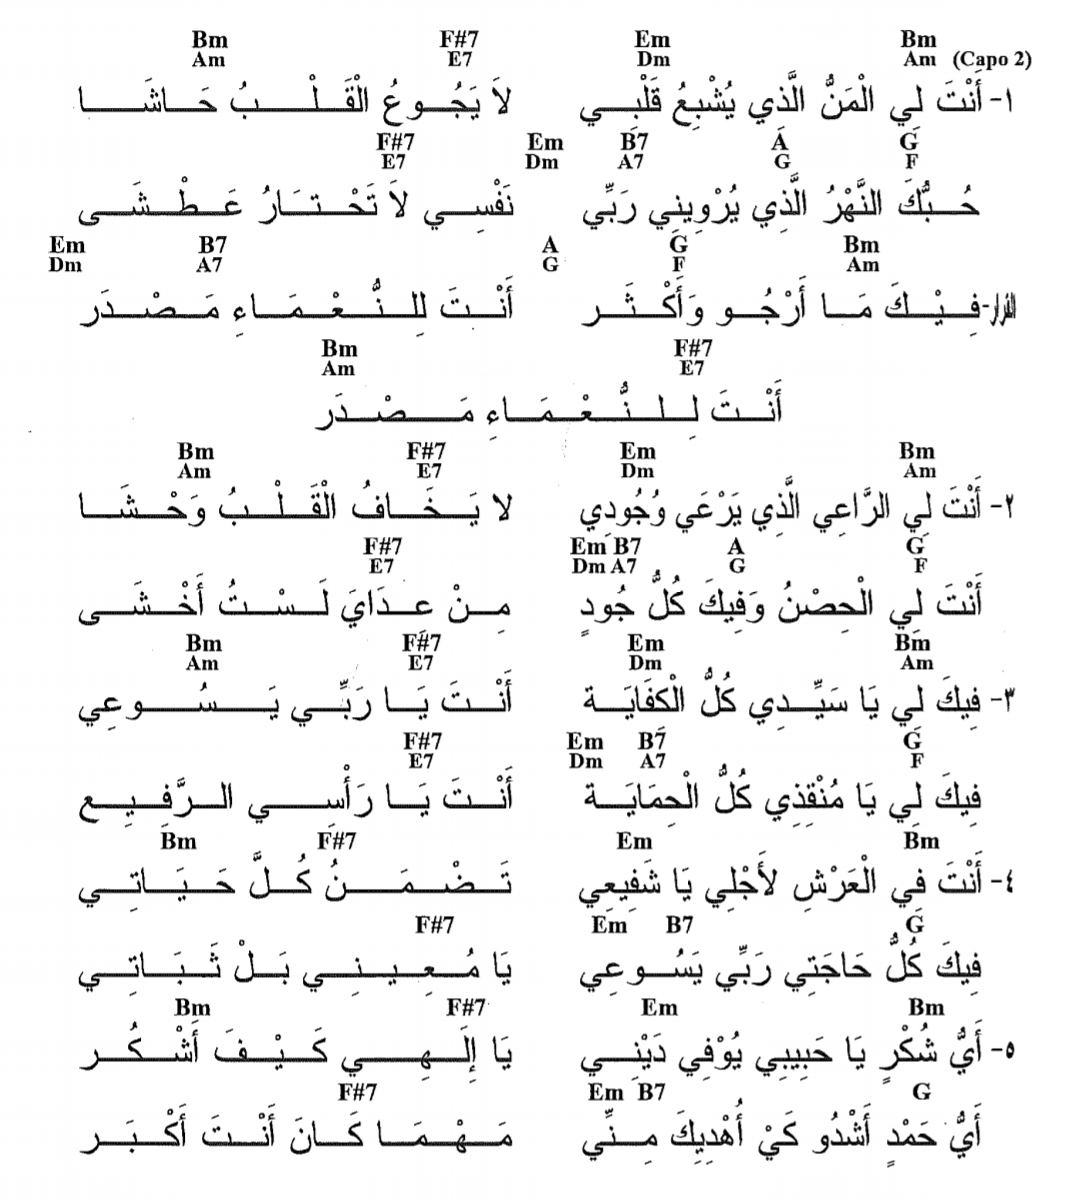 Bm F#7 Em Bm
Am E7 Dm Am (Capo 2)
١- أَنْتَ لِي الْمَنُّ الَّذِي يُشْبِعُ قَلْبِي لاَ يَجُوعُ الْقَلْبُ حَاشَا
F#7 Em B7 A G
E7 Dm A7 G F
حُبُّكَ النَّهْرُ الَّذِي يُرْوِينِي رَبِّي نَفْسِي لاَ تَحْتَارُ عَطْشَى
Em B7 A G Bm
Dm A7 G F Am
القرار- فِيْكَ مَا أَرْجُو وَأَكْثَر أَنْتَ لِلنُّعْمَاءِ مَصْدَر
Bm F#7
Am E7
أَنْتَ لِلنُّعْمَاءِ مَصْدَر
Bm F#7 Em Bm
Am E7 Dm Am
٢- أَنْتَ لِي الرَّاعِي الَّذِي يَرْعَي وُجُودِي لا يَخَافُ الْقَلْبُ وَحْشَا
F#7 Em B7 A G
E7 Dm A7 G F
أَنْتَ لِي الْحِصْنُ وَفِيكَ كُلُّ جُودٍ مِنْ عِدَايَ لَسْتُ أَخْشَى
Bm F#7 Em Bm
Am E7 Dm Am
٣- فِيكَ لِي يَا سَيِّدِي كُلُّ الْكفَايَة أَنْتَ يَا رَبِّي يَسُوعِي
F#7 Em B7 G
E7 Dm A7 F
فِيكَ لِي يَا مُنْقِذِي كُلُّ الْحِمَايَة أَنْتَ يَا رَأْسِي الرَّفِيع
Bm F#7 Em Bm
٤- أَنْتَ فِي الْعَرْشِ لأَجْلِي يَا شَفِيعِي تَضْمَنُ كُلَّ حَيَاتِي
F#7 Em B7 G
فِيكَ كُلُّ حَاجَتِي رَبِّي يَسُوعِي يَا مُعِينِي بَلْ ثَبَاتِي
Bm F#7 Em Bm
٥- أَيُّ شُكْرٍ يَا حَبِيبِي يُوْفِي دَيْنِي يَا إِلَهِي كَيْفَ أَشْكُر
F#7 Em B7 G
أَيُّ حَمْدٍ أَشْدُو كَيْ أُهْدِيكَ مِنِّي مَهْمَا كَانَ أَنْتَ أَكْبَر